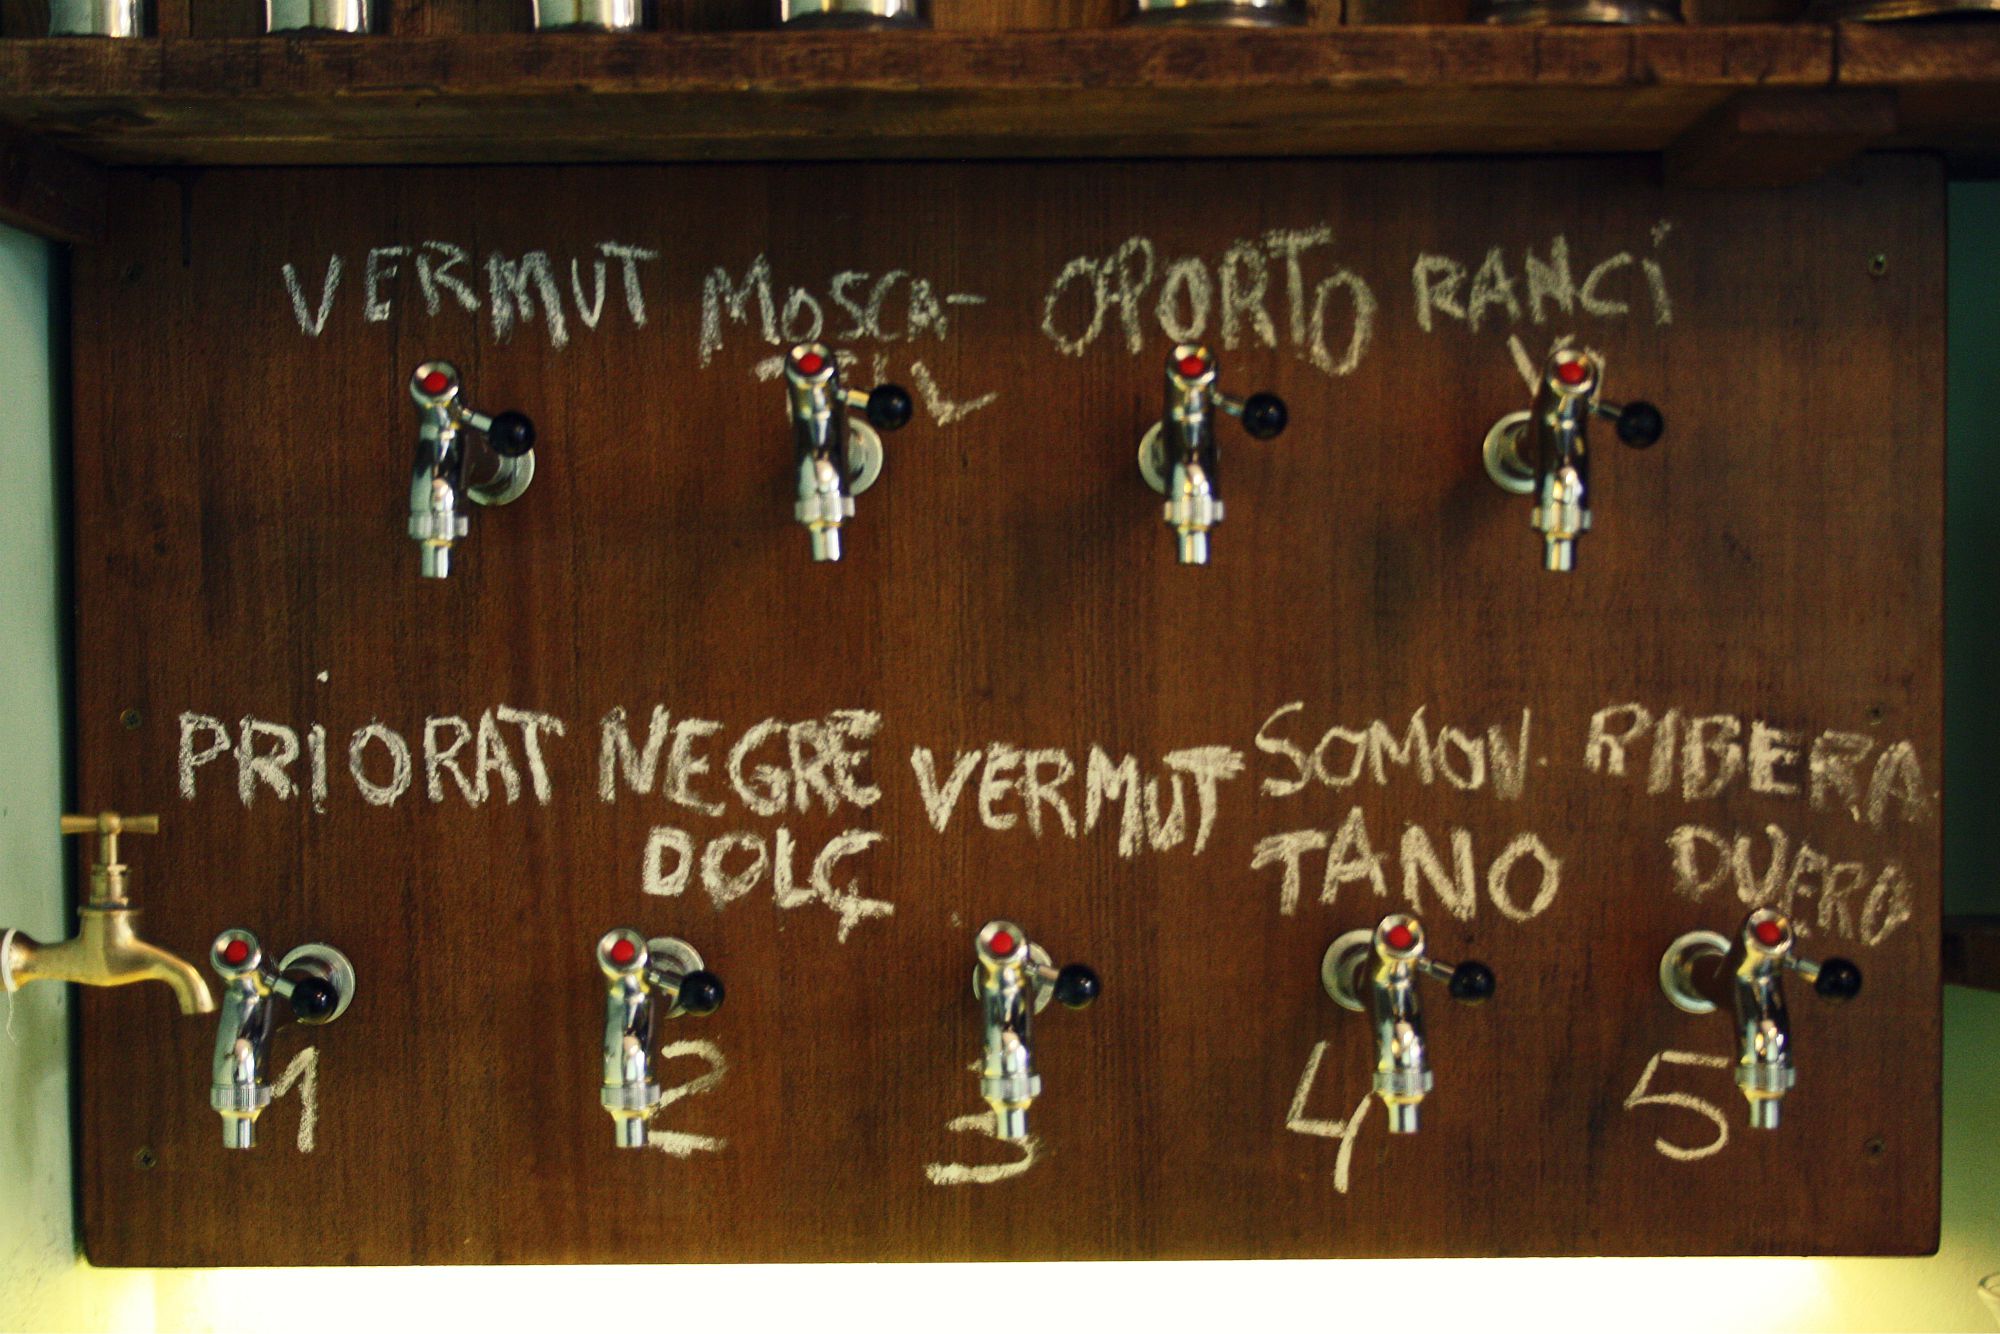 VERMUT
MOSCA-
TELL
OPORTO
RANCI
PRIORAT
NEGRE
DOLÇ
VERMUT
SOMON.
TANO
RIBERA
DUERO
1
2
3
4
5